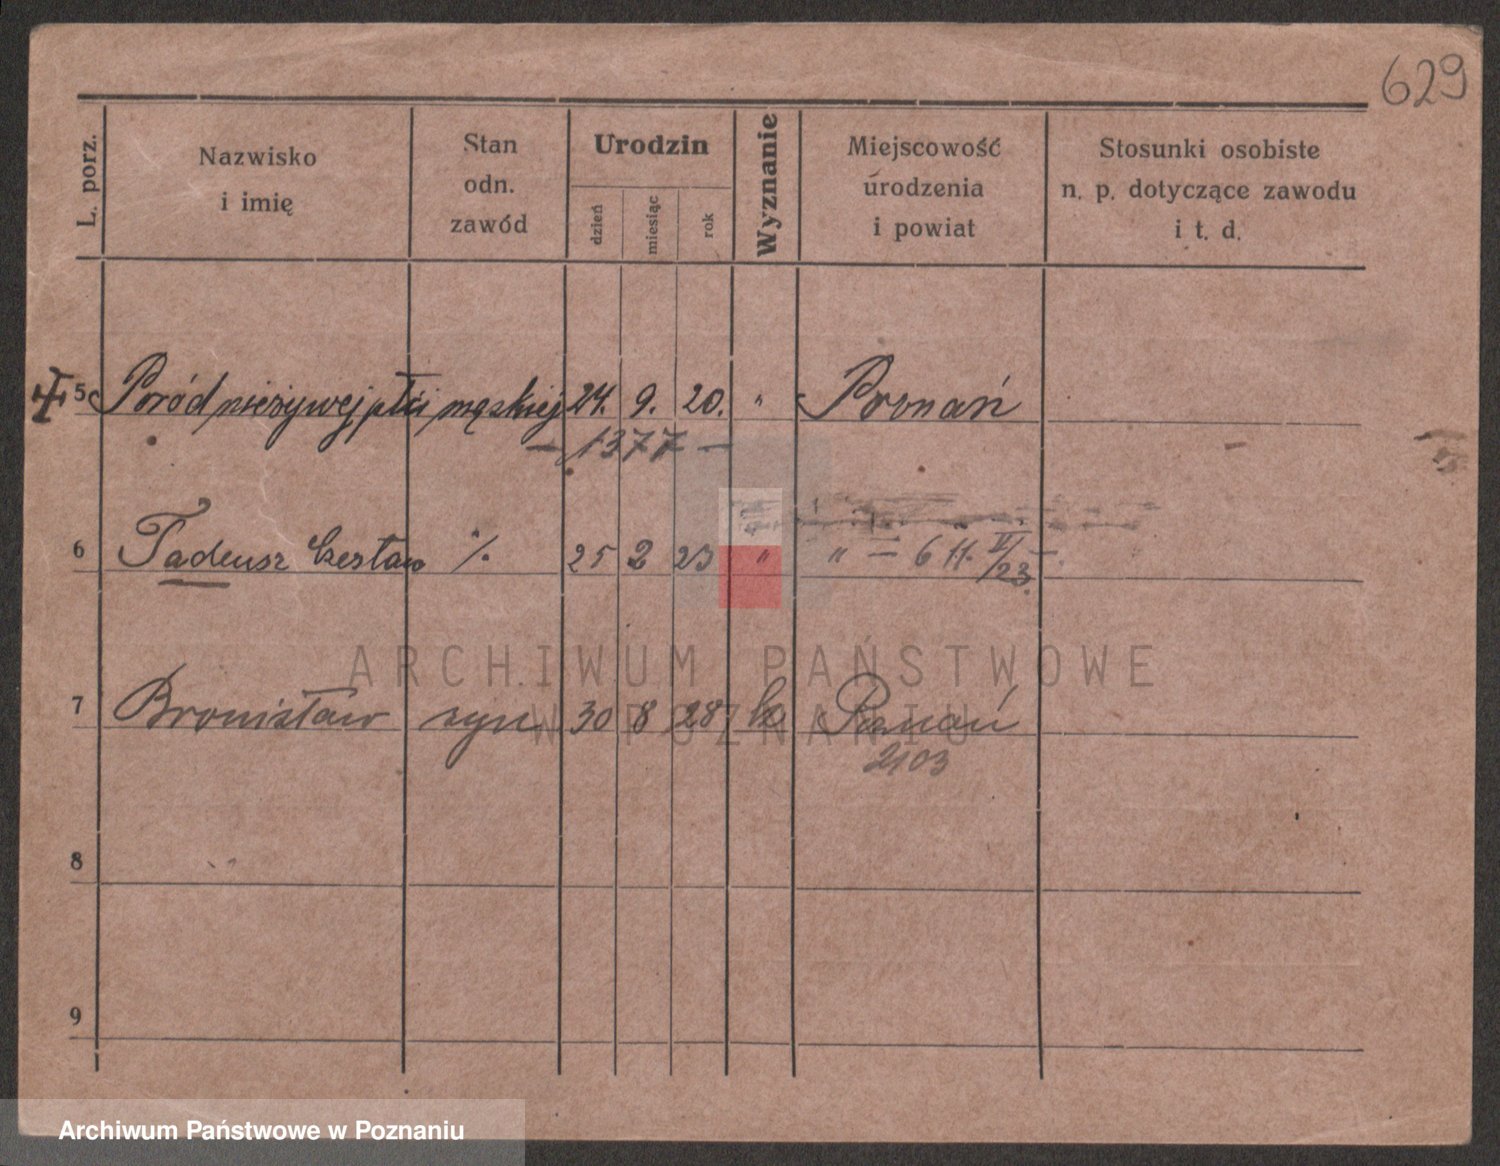 629
L. porz.
Nazwisko
i imię
Stan
odn.
zawód
Urodzin
dzień
miesiąc
rok
Wyznanie
Miejscowość
urodzenia
i powiat
Stosunki osobiste
n. p. dotyczące zawodu
i t. d.
5 Poród nieżywej płci męskiej 24. 9. 20. " Poznań
— 1377 —
6 Tadeusz Czesław % 25 2 23 " " — 6 II/23.
7 Bronisław syn 30 8 28 k. Poznań
2103
8
9
ARCHIWUM PAŃSTWOWE
W POZNANIU
Archiwum Państwowe w Poznaniu